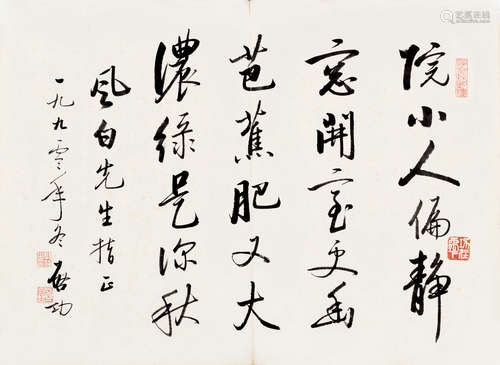 院小人偏静
窓開室更幽
芭蕉肥又大
濃绿是深秋
风白先生指正
一九九零年冬 启功